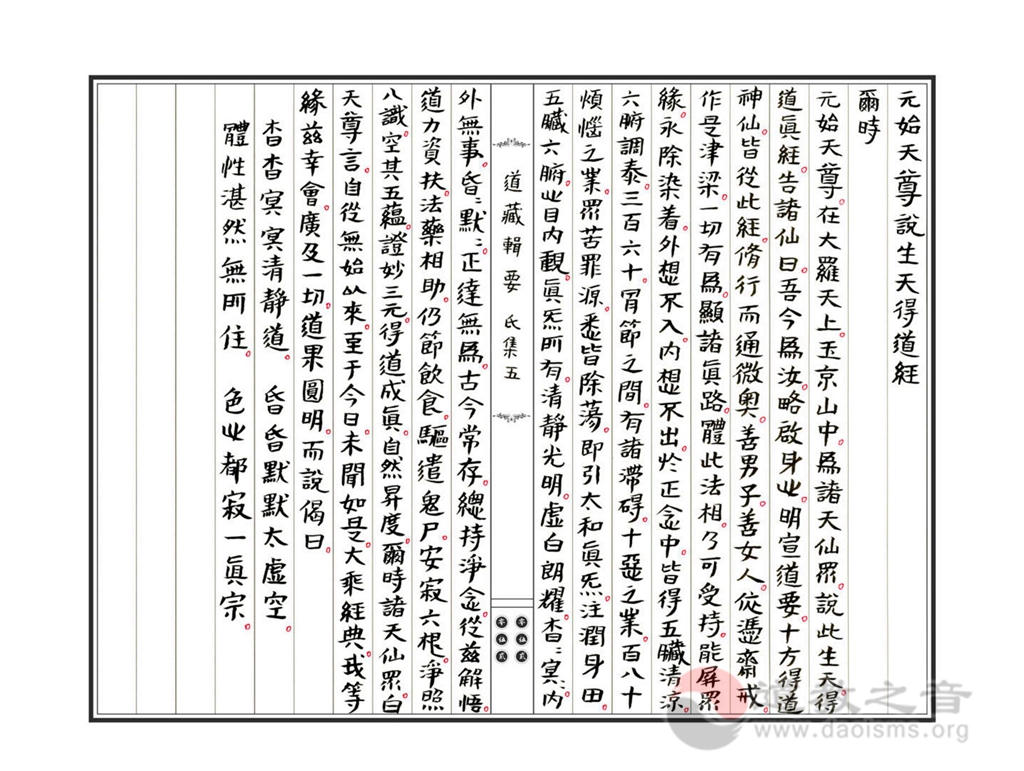 元始天尊說生天得道經
爾時
元始天尊。在大羅天上。玉京山中。爲諸天仙眾。說此生天得
道眞經。告諸仙曰。吾今爲汝。略啟身心。明宣道要。十方得道
神仙。皆從此經。脩行而通微奧。善男子。善女人。依憑齋戒。
作是津梁。一切有爲。顯諸眞路。體此法相。乃可受持。能屏眾
緣。永除染着。外想不入。內想不出。於正念中。皆得五臟清涼。
六腑調泰。三百六十骨節之間。有諸滯碍。十惡之業。百八十
煩惱之業。眾苦罪源。悉皆除蕩。即引太和眞炁。注潤身田。
五臟六腑。心目內觀。眞炁所有。清靜光明。虛白朗耀。杳:冥:。內
道藏輯要 氐集五
外無事。昏:默:。正達無爲。古今常存。總持淨念。從茲解悟。
道力資扶。法藥相助。仍節飲食。驅遣鬼尸。安寂六根。淨照
八識。空其五蘊。證妙三元。得道成眞。自然昇度。爾時諸天仙眾。白
天尊言。自從無始以來。至于今日。未聞如是。大乘經典。我等
緣茲幸會。廣及一切。道果圓明。而說偈曰。
杳杳冥冥清靜道。 昏昏默默太虛空。
體性湛然無所住。 色心都寂一眞宗。
道教之音
www.daoisms.org